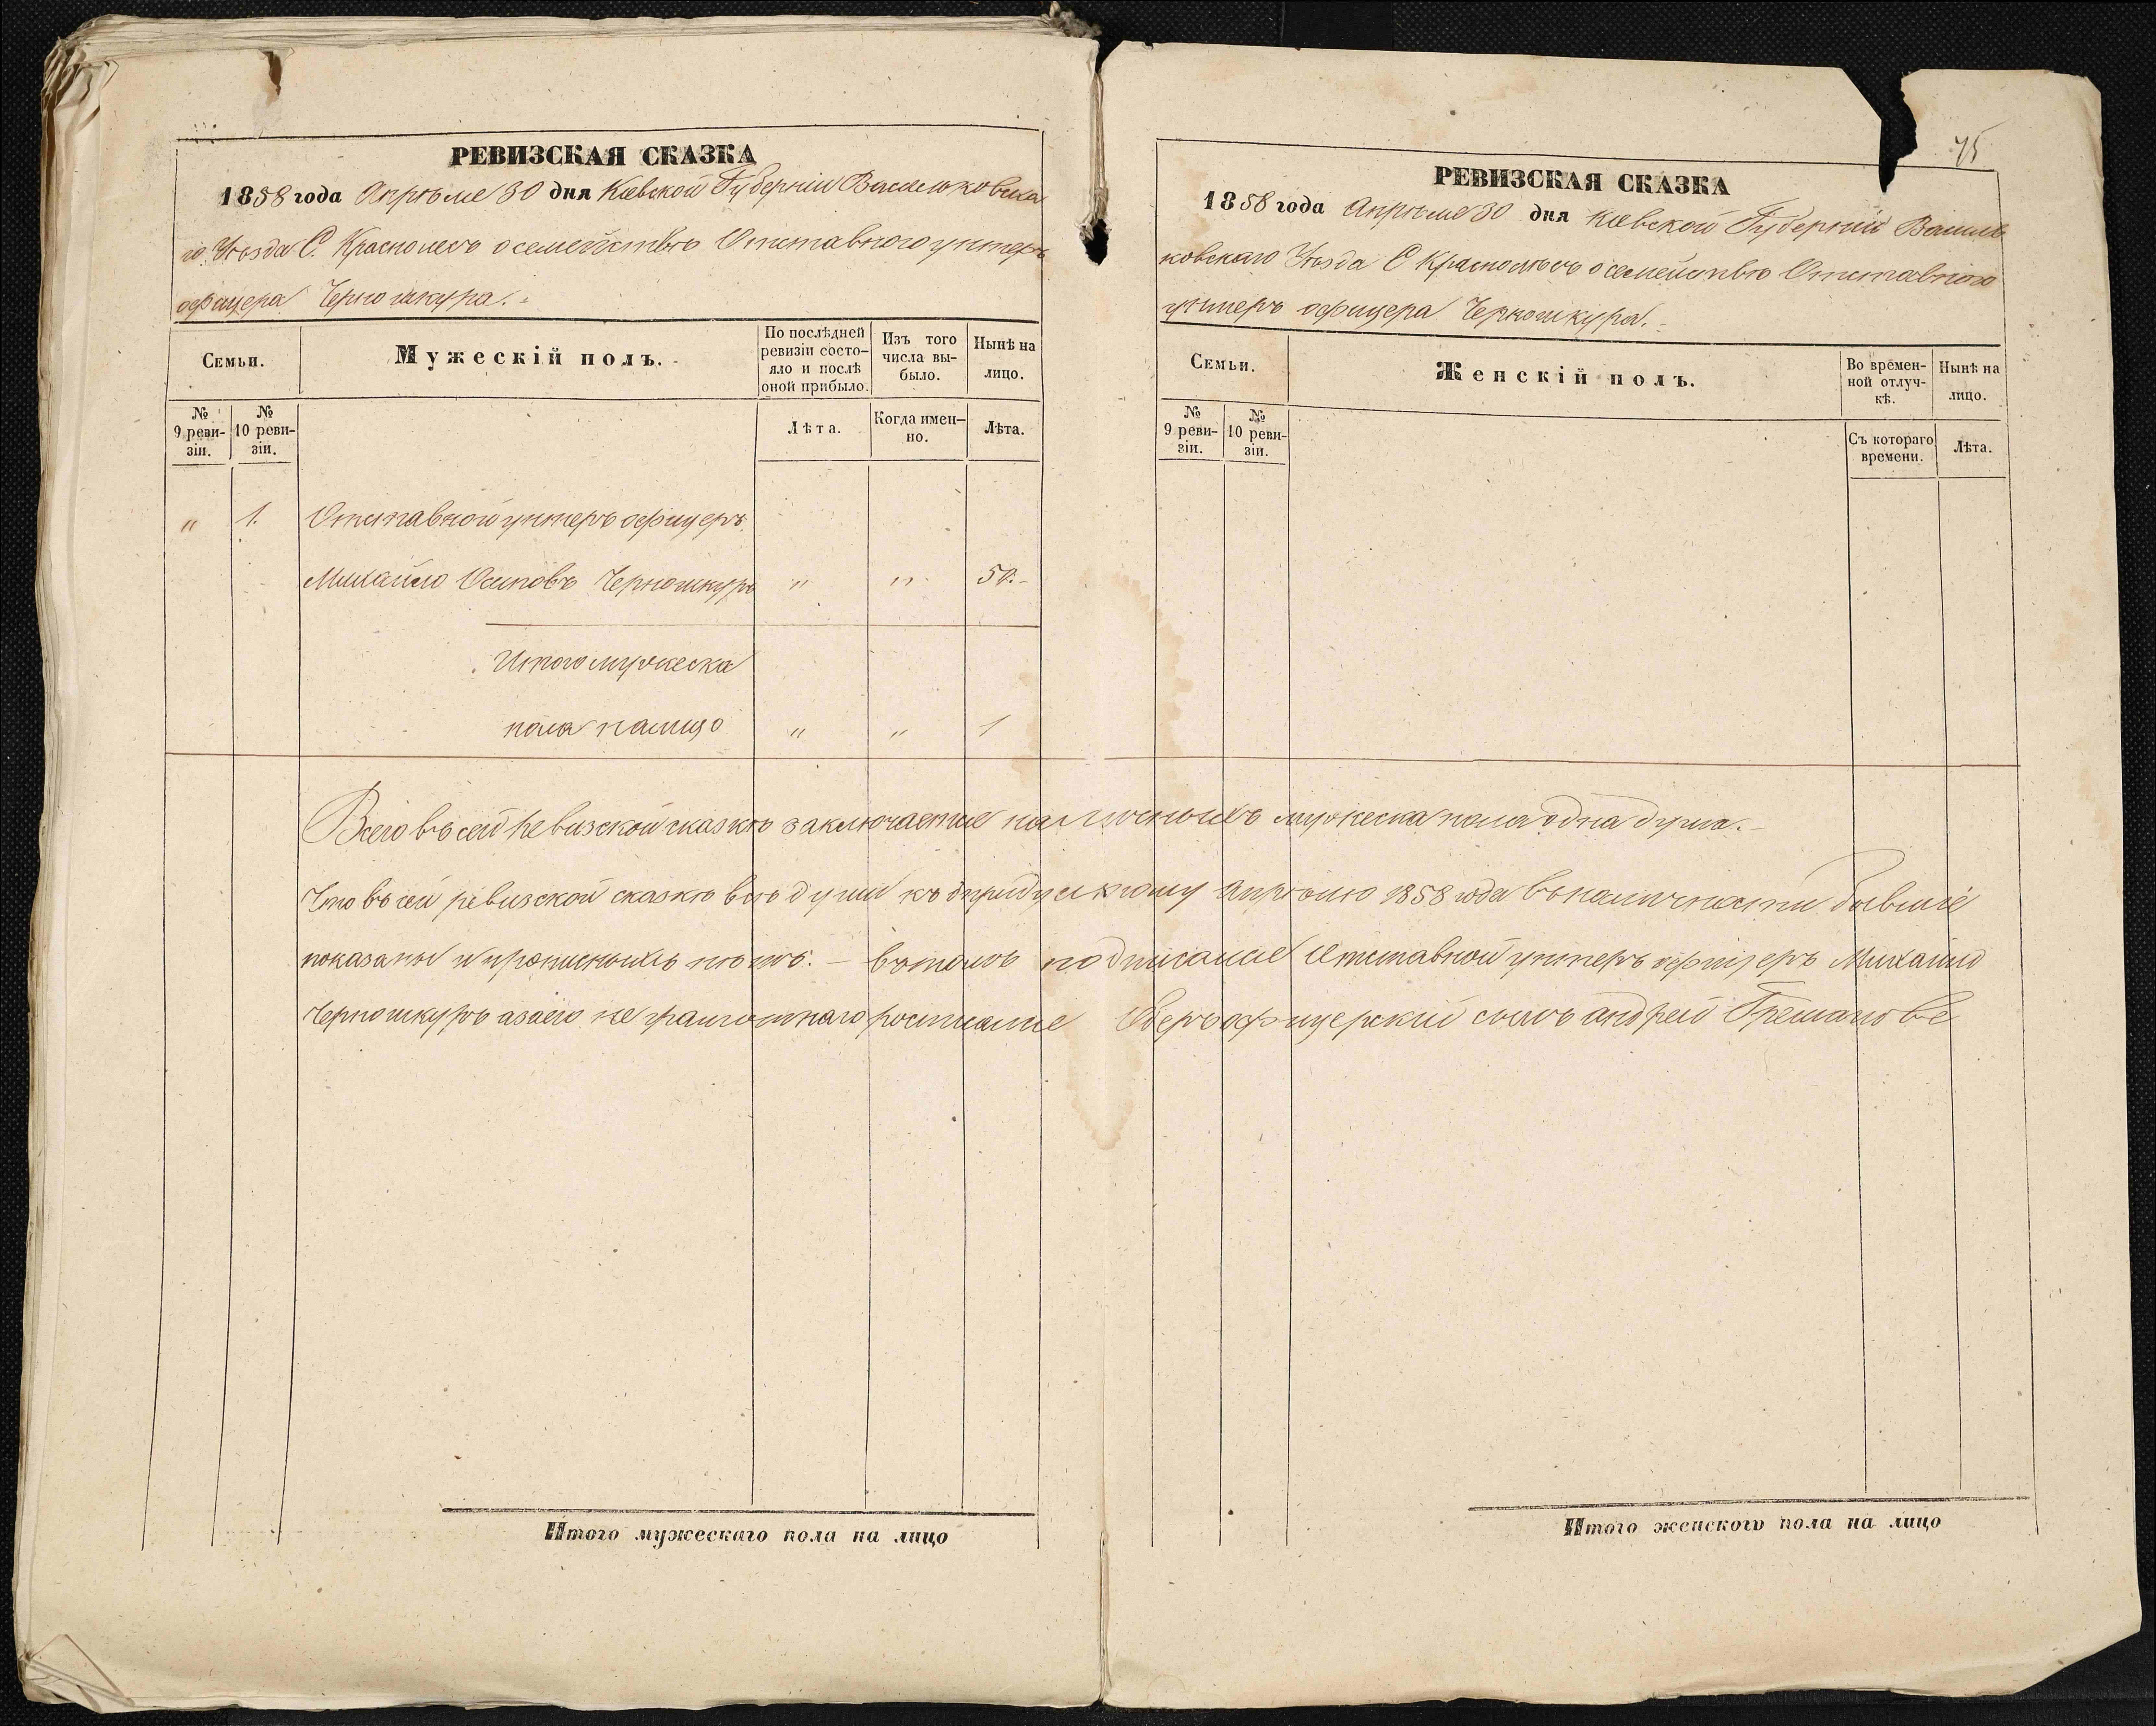 РЕВИЗСКАЯ СКАЗКА
1858 года Апрѣля 30 дня Кіевской Губерніи Васильковска
го Уѣзда С. Краснолесъ о семействѣ Отставного унтеръ
офицера Черношкура.
Семьи.
Мужескій полъ.
По послѣдней
ревизіи состо-
яло и послѣ
оной прибыло.
Изъ того
числа вы-
было.
Нынѣ на
лицо.
№
9 реви-
зіи.
№
10 реви-
зіи.
Лѣта.
Когда имен-
но.
Лѣта.
" 1. Отставной унтеръ офицеръ
Михайло Осиповъ Черношкуръ " " 50.-
Итого мужеска
пола налицо " " 1
Итого мужескаго пола на лицо
75
РЕВИЗСКАЯ СКАЗКА
1858 года Апрѣля 30 дня Кіевской Губерніи Василь
ковскаго Уѣзда С Краснолѣсъ о семействѣ Отставного
унтеръ офицера Черношкура.
Семьи.
Женскій полъ.
Во времен-
ной отлуч-
кѣ.
Нынѣ на
лицо.
№
9 реви-
зіи.
№
10 реви-
зіи.
Съ котораго
времени.
Лѣта.
Всего въ сей Ревизской сказкѣ заключается наличныхъ мужеска пола одна душа.
Что въ сей ревизской сказкѣ всѣ души къ Апрѣлю 1858 года въ наличности бывшіе
показаны и прописныхъ нѣтъ. - въ томъ подписался Отставной унтеръ офицеръ Михайло
Черношкуръ а за его не грамотнаго росписался Оберъ офицерскій сынъ андрей
Итого женского пола на лицо